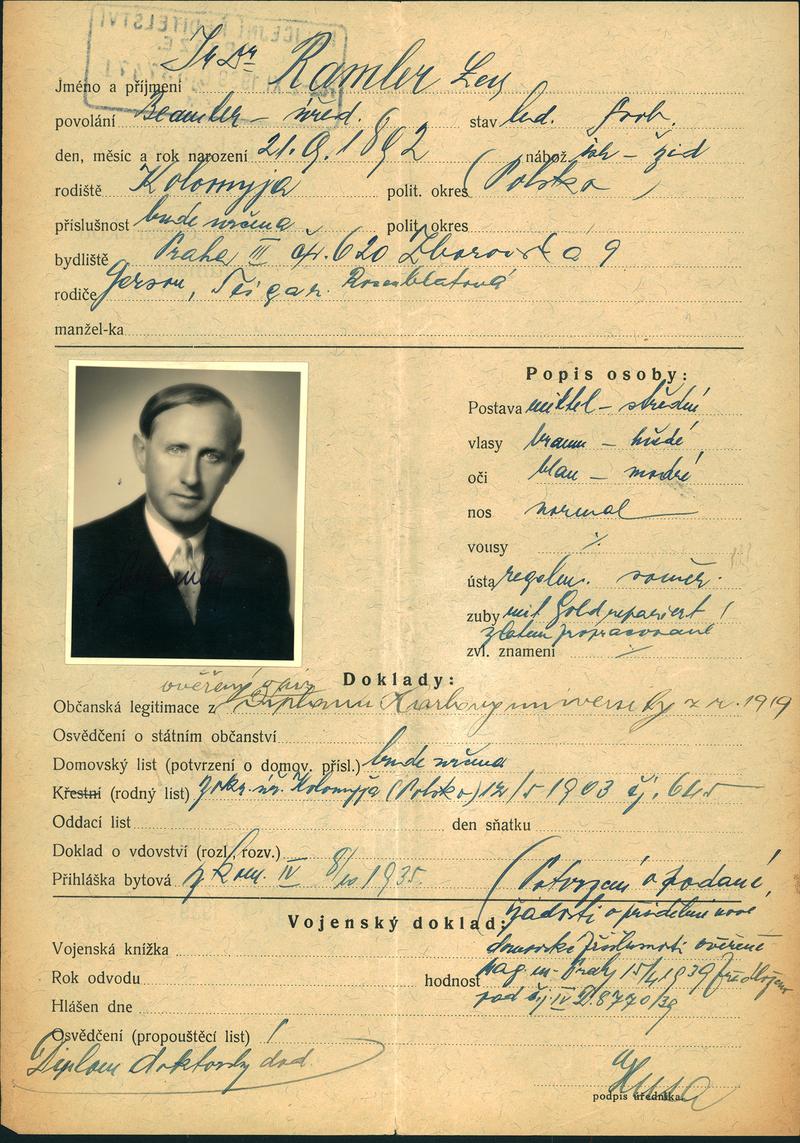 JuDr Ramler Leo
Jméno a příjmení
povolání Beamter – úřed. stav led.
den, měsíc a rok narození 21.9.1892 nábož. isr – žid
rodiště Kolomyja polit. okres (Polsko)
příslušnost bude určena polit. okres
bydliště Praha III čp. 620 Zborovská 9
rodiče Gerson, Rosenblatová
manžel-ka
Popis osoby:
Postava mittel – střední
vlasy braun – hnědé
oči blau – modré
nos normal
vousy ⁒
ústa regelm. souměr.
zuby mit Gold repariert /
zlatem propracované
zvl. znamení ⁒
Doklady:
ověřený opis
Občanská legitimace z Diplomu Karlovy university z r. 1919
Osvědčení o státním občanství
Domovský list (potvrzení o domov. přísl.) bude určena
Křestní (rodný list) Kolomyja (Polsko) 12/5 1903 čj. 645
Oddací list den sňatku
Doklad o vdovství (rozl., rozv.)
Přihláška bytová z kom. IV 8/10 1935.
(Potvrzení o podané
žádosti o přidělení nové
domovské příslušnosti ověřené
mag. m. Prahy 15/4 1939 předloženo
pod čj IV D.8770/39
Vojenský doklad:
Vojenská knížka
Rok odvodu hodnost
Hlášen dne
Osvědčení (propouštěcí list) /
Diplom doktorský dod.
Husa
podpis úředníka.